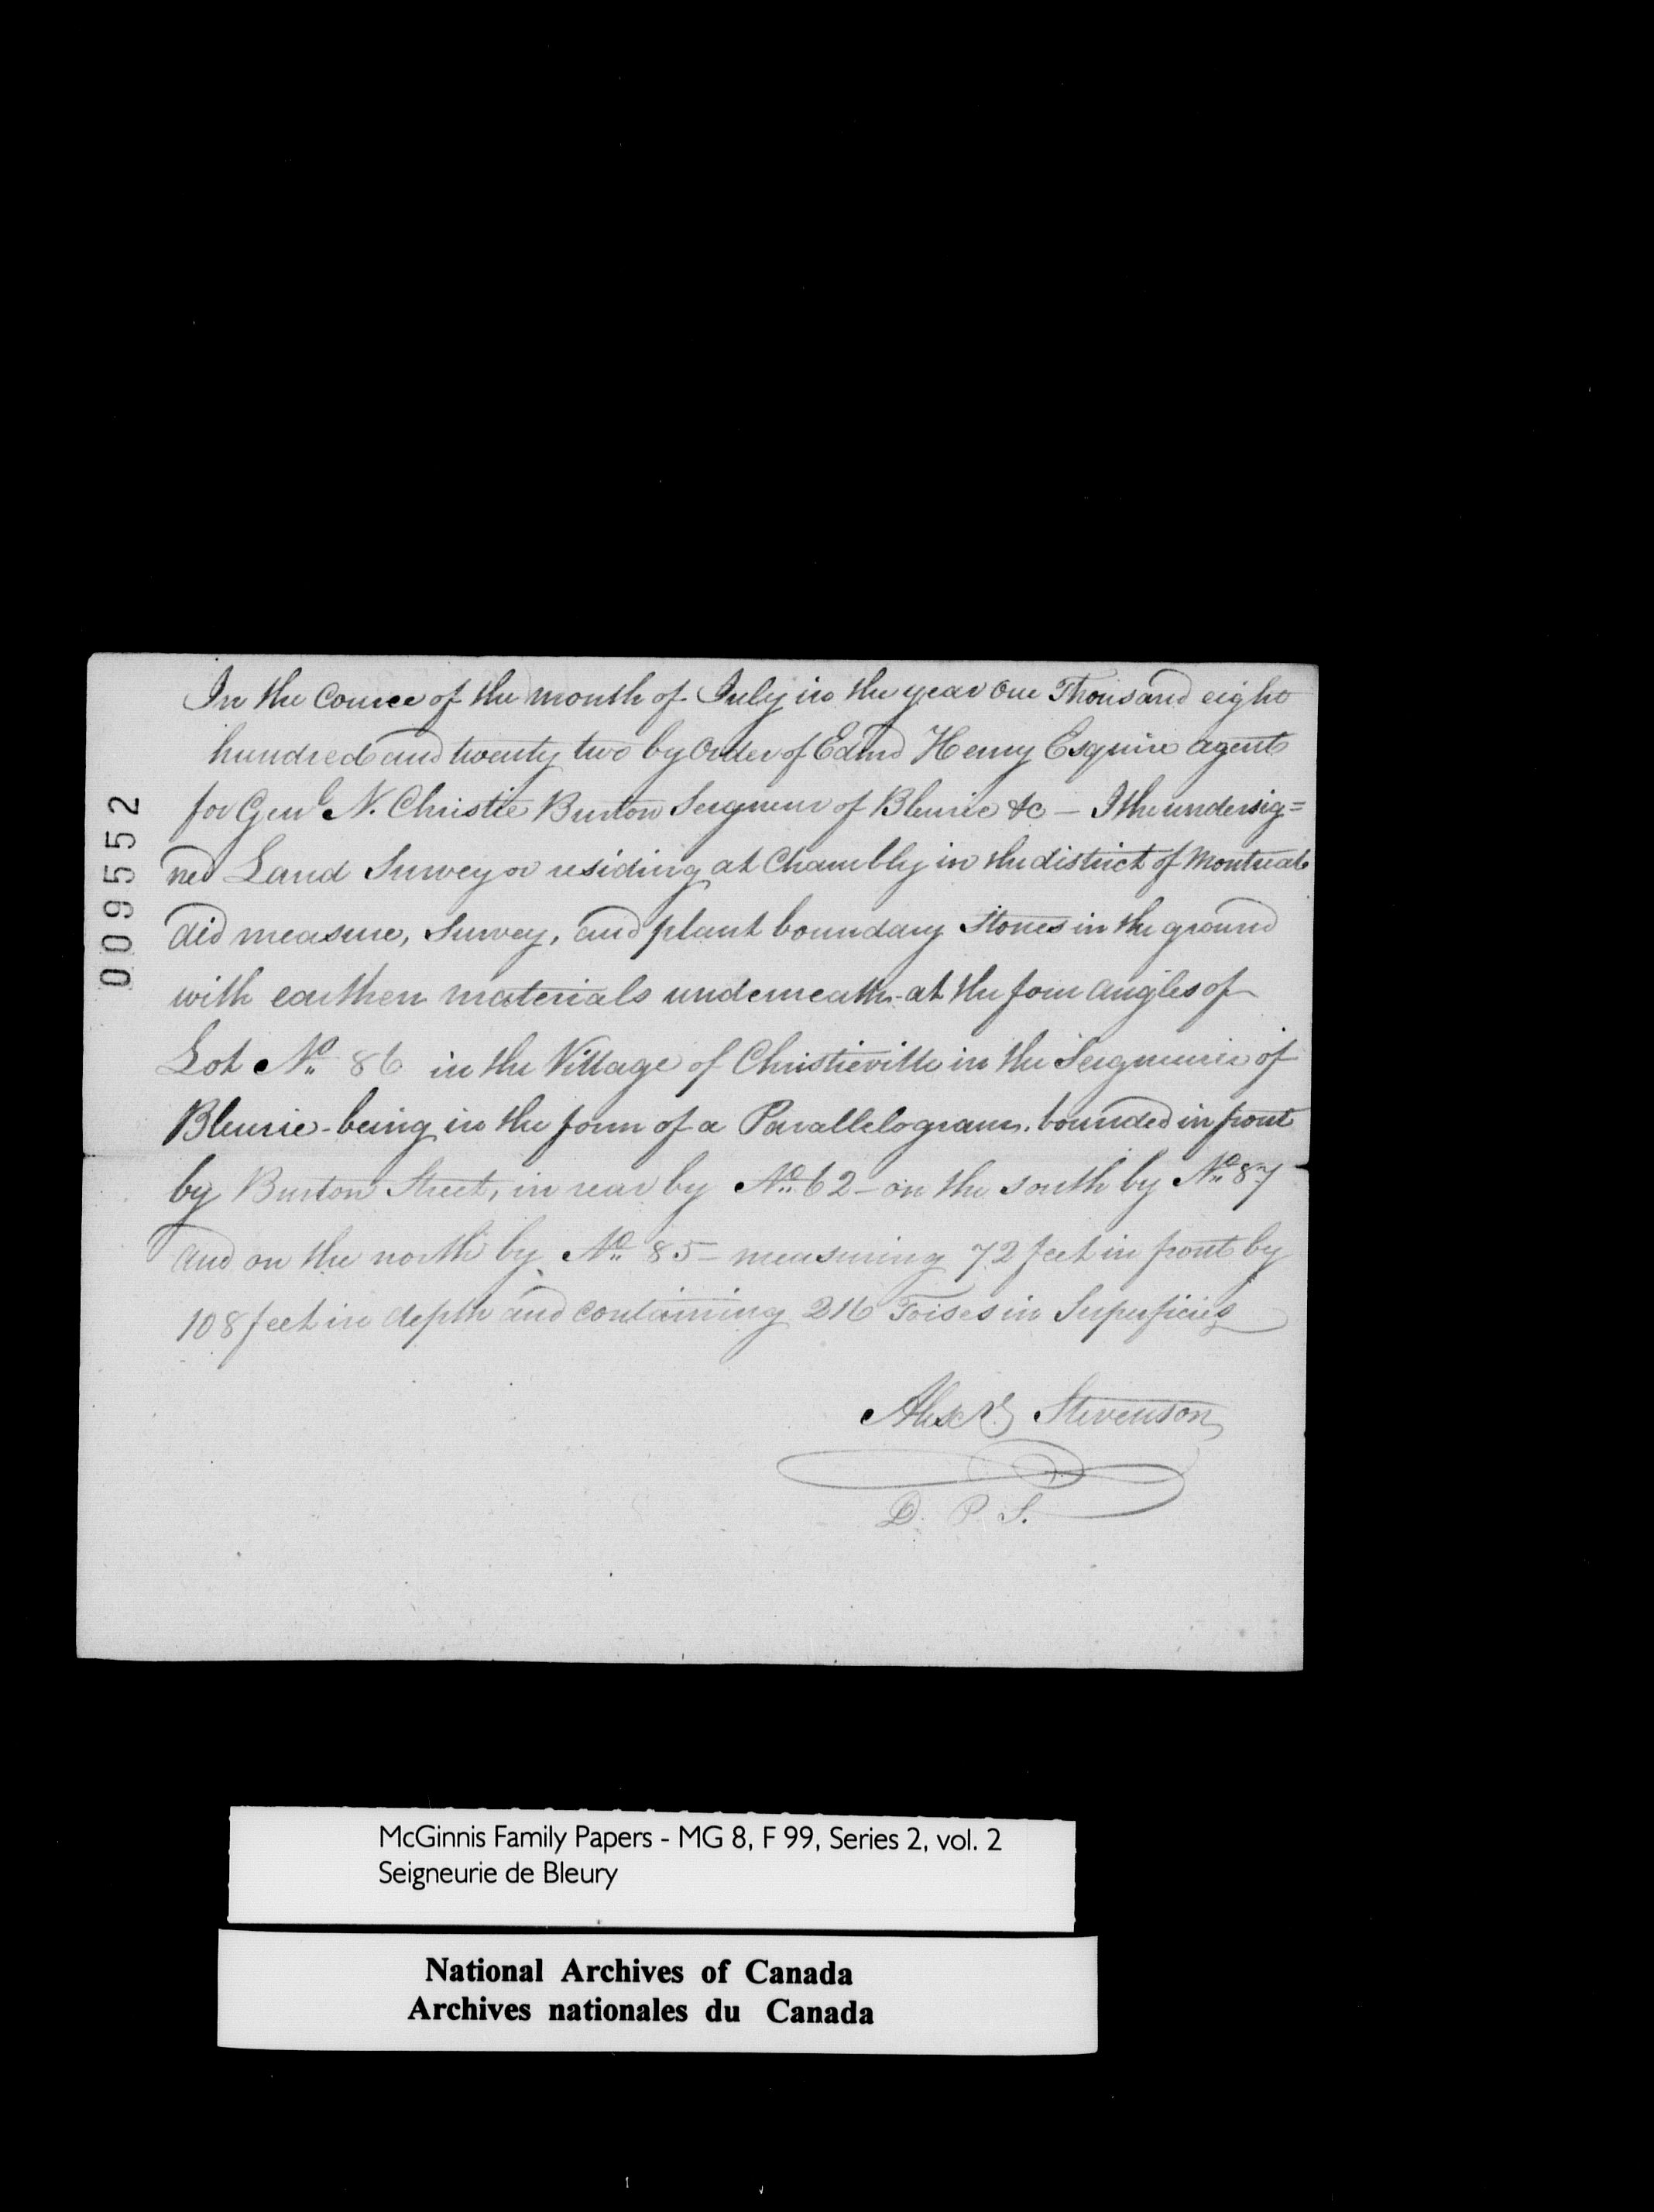 In the Cource of the month of July in the year One Thousand eight
hundred and twenty two by Order of Edmd Henry Esquire agent
for Genl N. Christie Burton Seigneur of Bleurie &c — I the undersig=
ned Land Surveyor residing at Chambly in the district of Montreal
did measure, Survey, and plant boundary Stones in the ground
with earthen materials underneath - at the four angles of
Lot No 86 in the Village of Christieville in the Seigneurie of
Bleurie - being in the form of a Parallelogram. bounded in front
by Burton Street, in rear by No 62 - on the south by No 87
and on the north by No 85 - measuring 72 feet in front by
108 feet in depth and containing 216 Toises in Superficies
Alexr Stevenson
D. P. S.
009552
McGinnis Family Papers - MG 8, F 99, Series 2, vol. 2
Seigneurie de Bleury
National Archives of Canada
Archives nationales du Canada